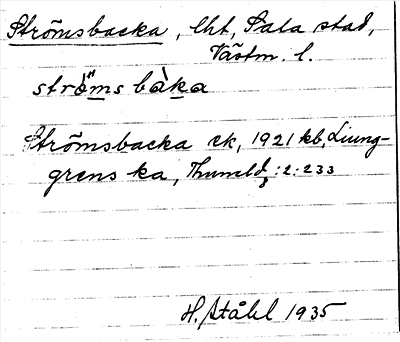 Strömsbacka, lht, Sala stad,
Västm. l.
ströms baka
Strömsbacka ek, 1921 kb, Ljung-
grens ka, :2:233
H. Ståhl 1935